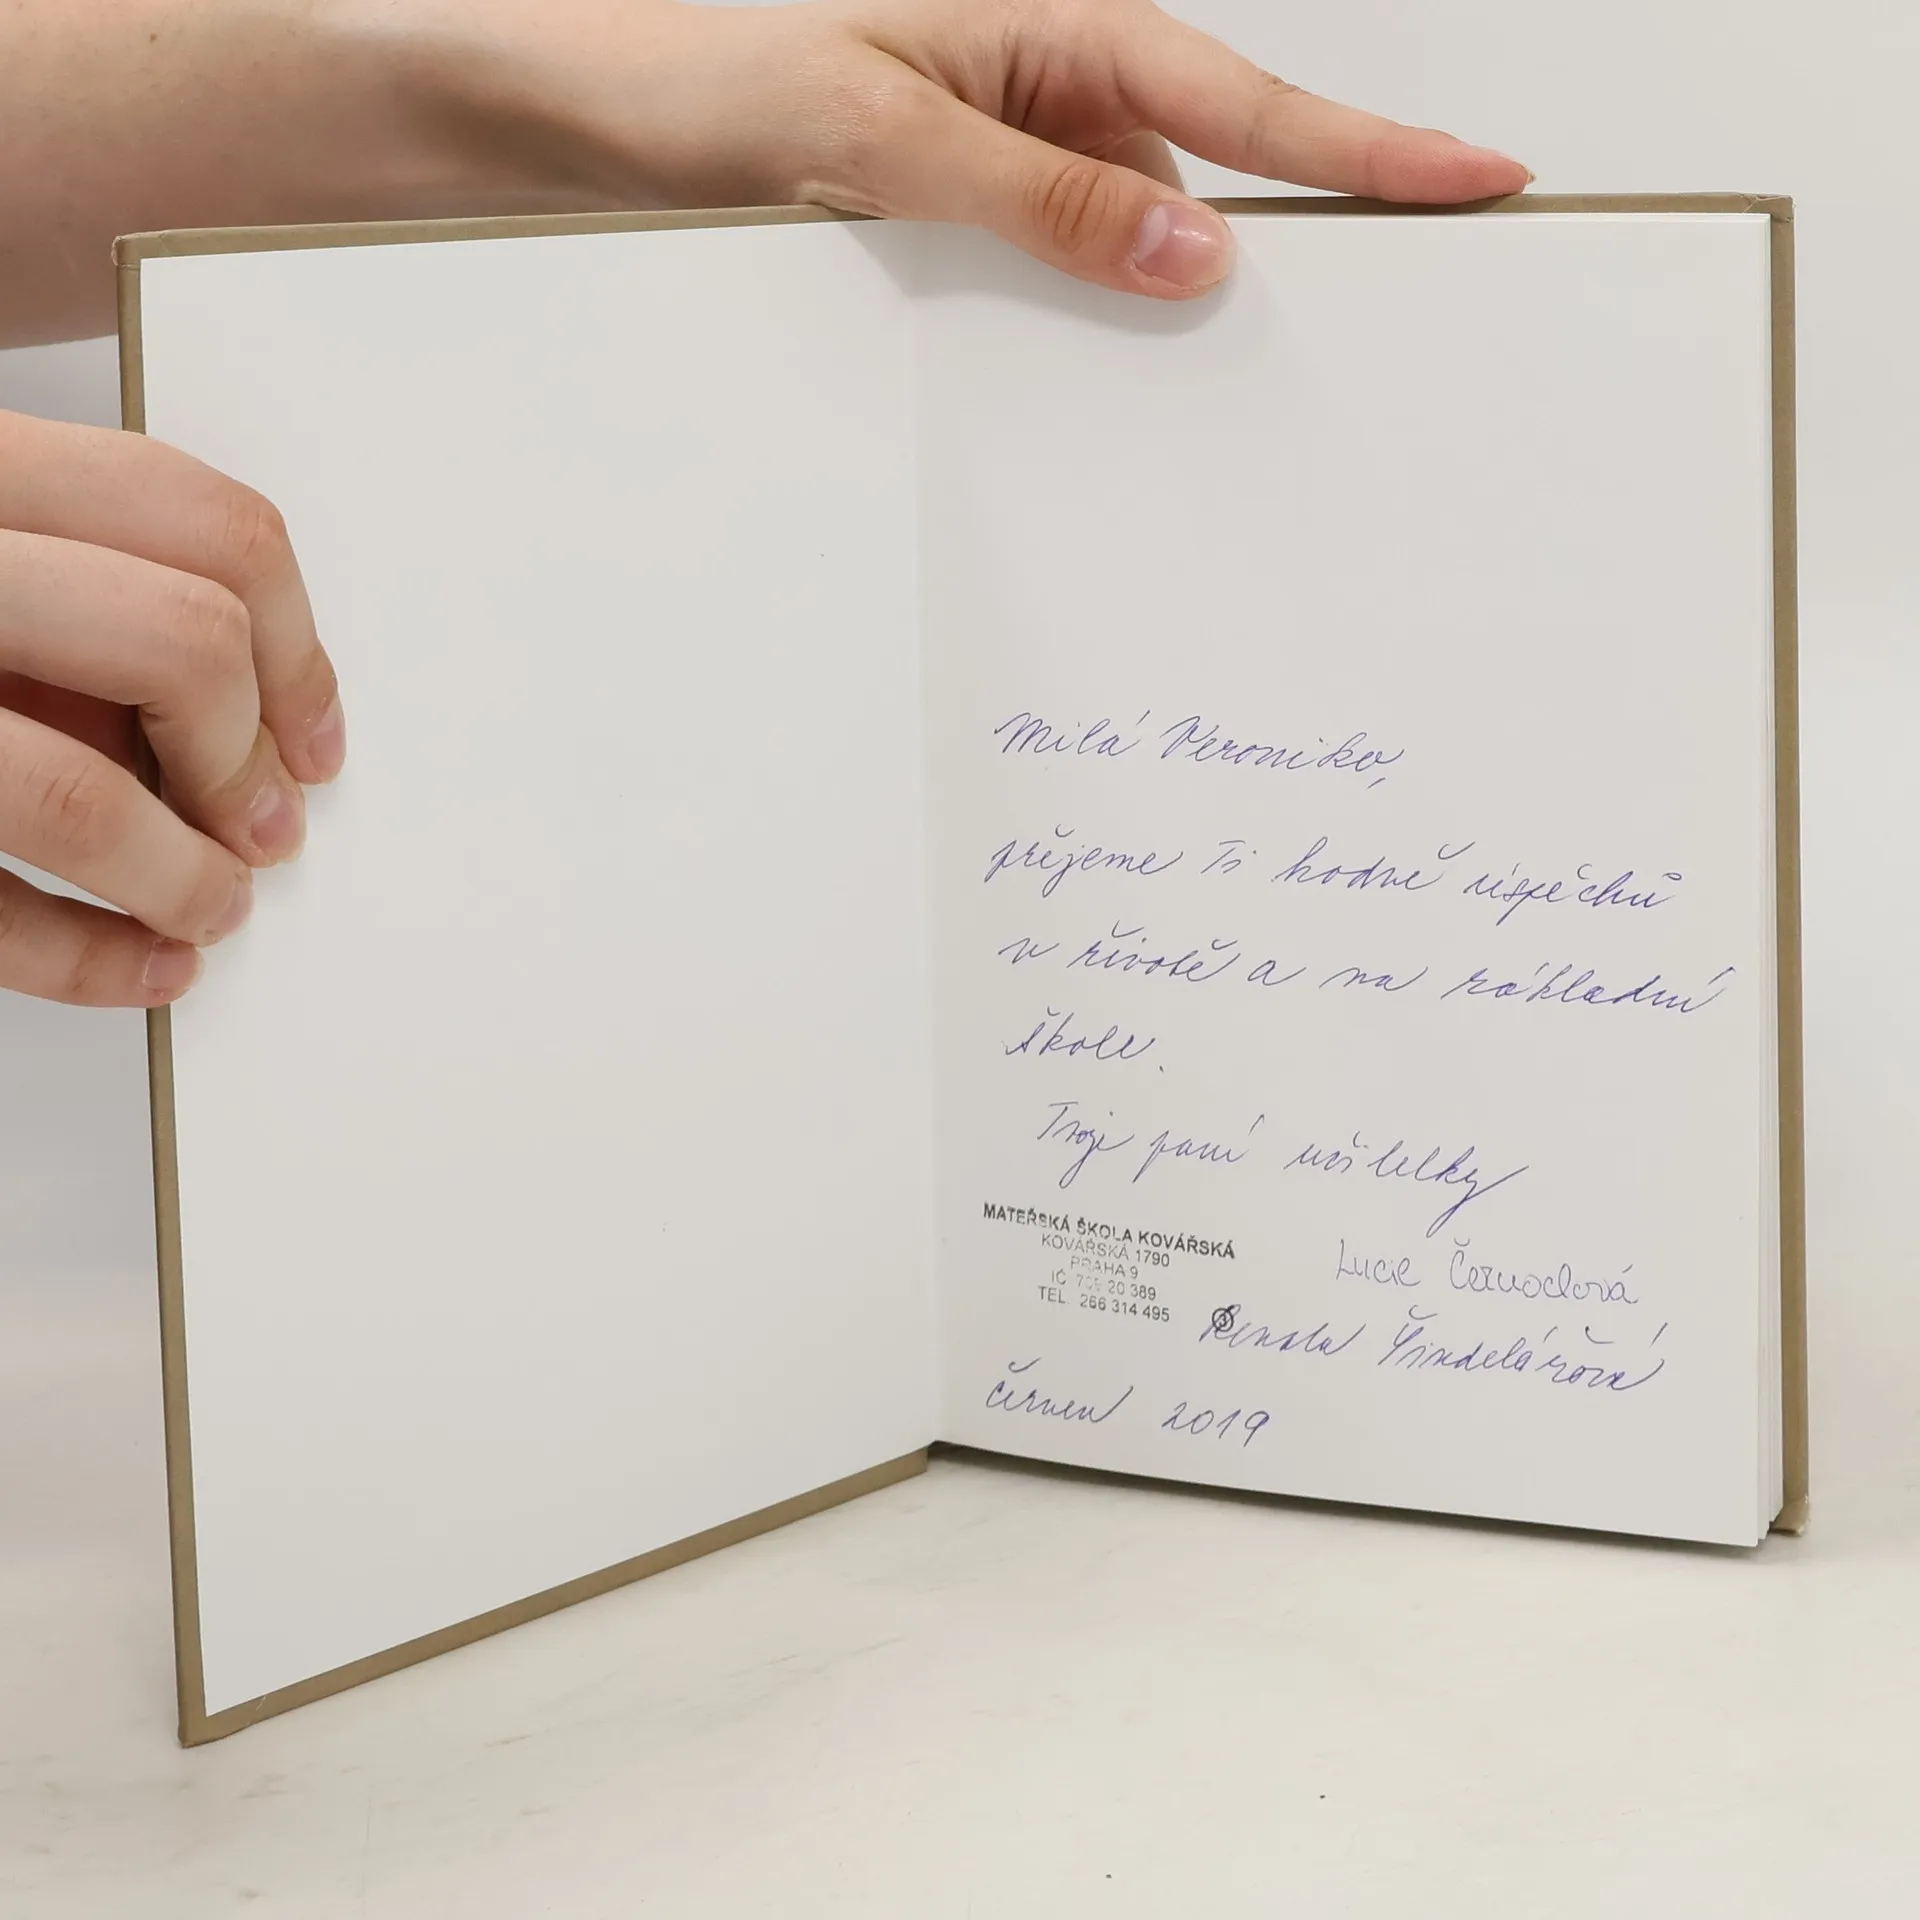 Milá Veroniko,
přejeme Ti hodně úspěchů
v životě a na základní
škole.
Tvoje paní učitelky
MATEŘSKÁ ŠKOLA KOVÁŘSKÁ
KOVÁŘSKÁ 1790
PRAHA 9
IČ 709 20 389
TEL. 266 314 495
Lucie
Renata Šindelářová
červen 2019